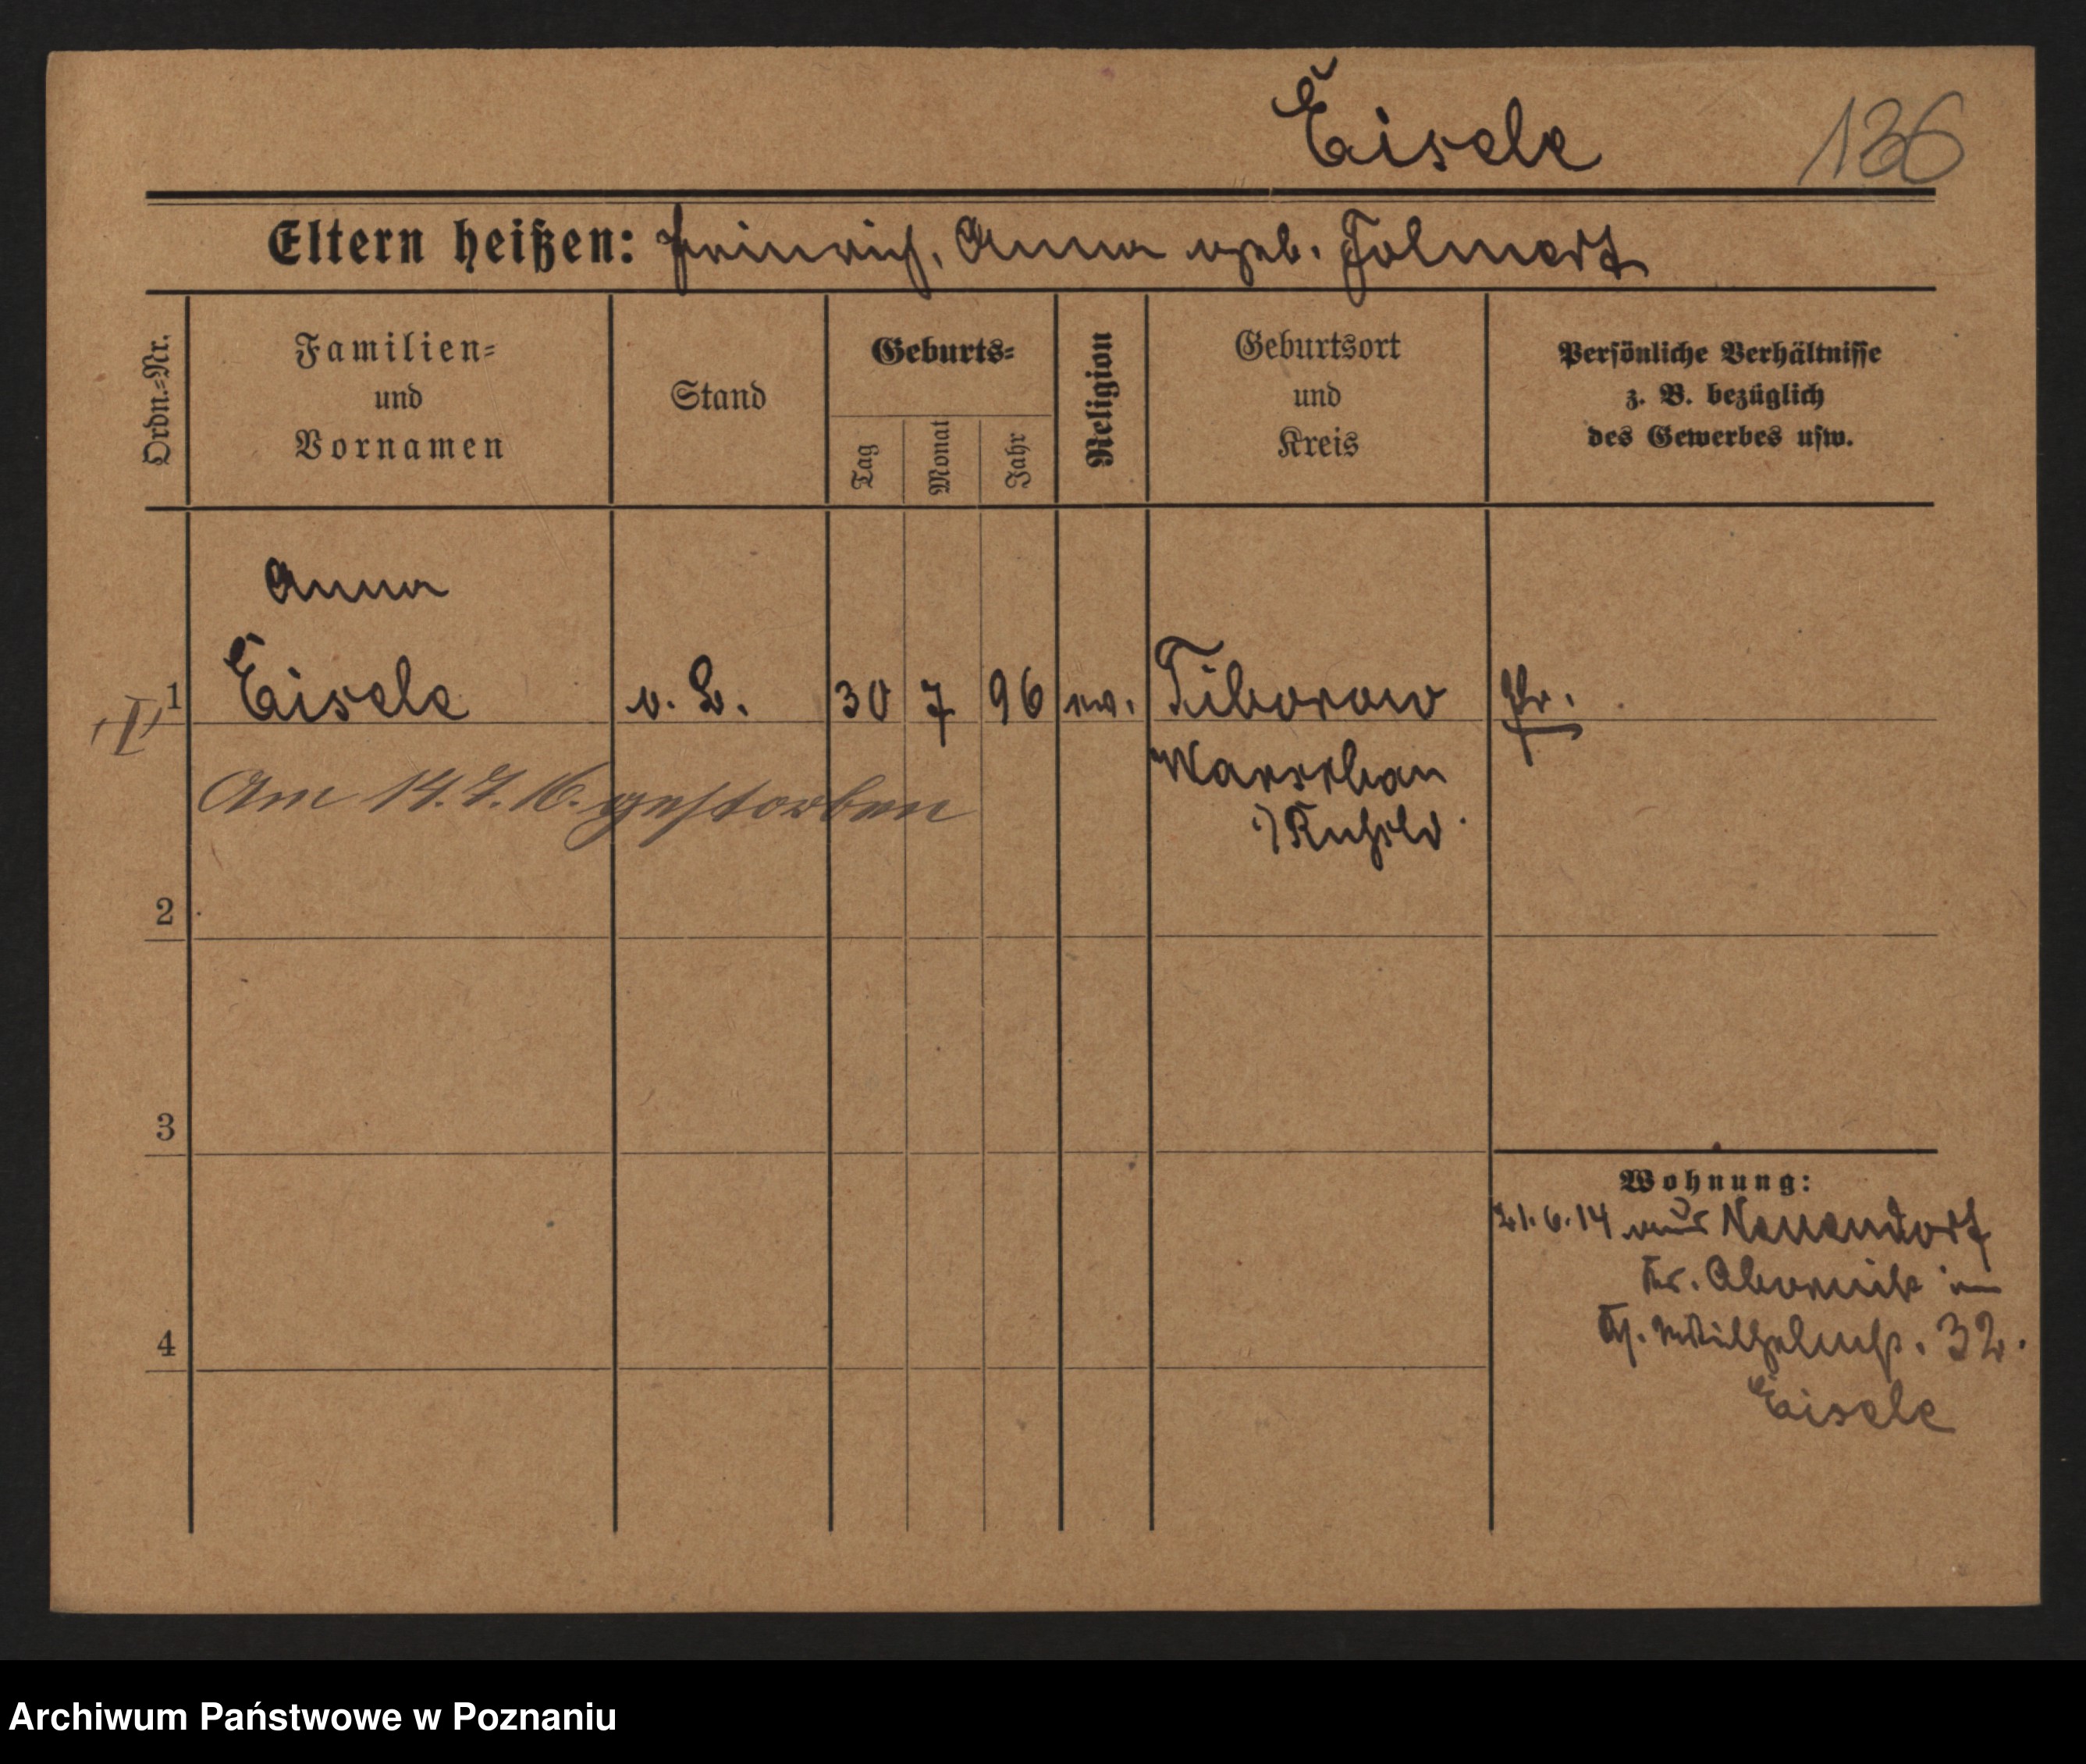 Eisele 136
Eltern heißen: Heinrich, Anna geb. Folmert
Ordn.=Nr.
Familien=
und
Vornamen
Stand
Geburts=
Tag
Monat
Jahr
Religion
Geburtsort
und
Kreis
Persönliche Verhältnisse
z. B. bezüglich
des Gewerbes usw.
Anna
1 Eisele o. B. 30 7 96 ev. Tiborow Pr.
Warschau
i/ Rußld.
Am 14.7.16. gestorben
2
3
4
Wohnung:
21.6.14 aus Neuendorf
Kr. Obornik in
Wilhelmstr. 32.
Eisele
Archiwum Państwowe w Poznaniu